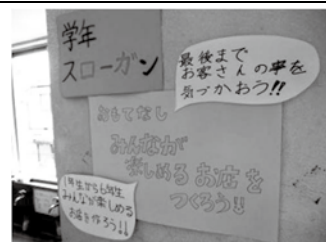 学年
スローガン
最後まで
お客さんの事を
気づかおう!!
おもてなし
みんなが
楽しめるお店を
つくろう!!
1年生から6年生
みんなが楽しめる
お店を作ろう!!